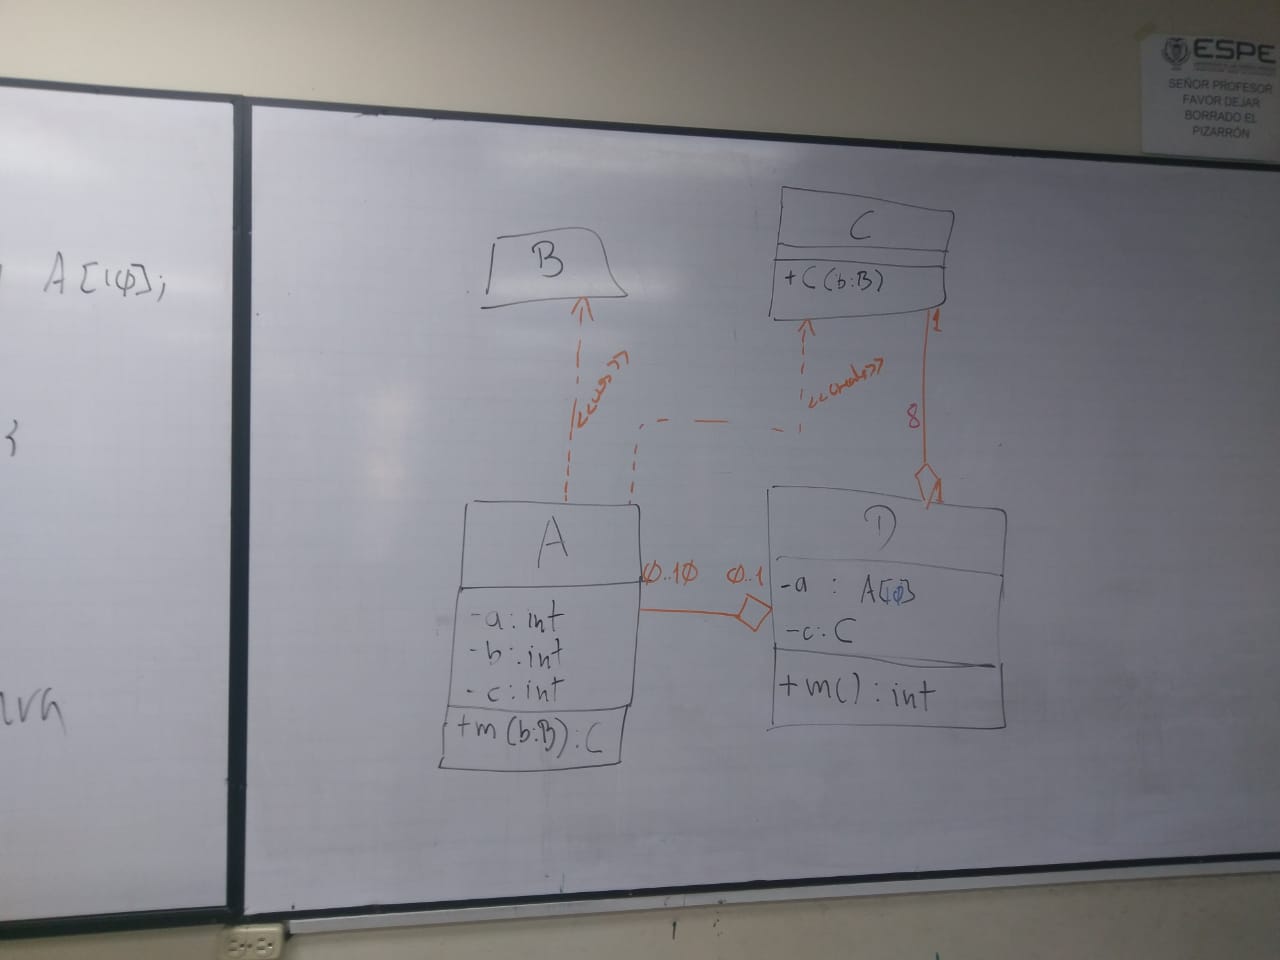 ESPE
SEÑOR PROFESOR
FAVOR DEJAR
BORRADO EL
PIZARRÓN
A[10];
}
B
C
+C(b:B)
1
<<use>>
<<create>>
8
1
A
-a: int
-b: int
-c: int
+m(b:B): C
0..10
0..1
D
-a : A[10]
-c: C
+m(): int